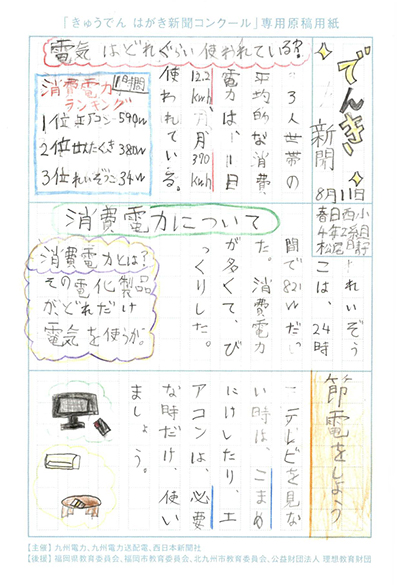 「きゅうでん はがき新聞コンクール」専用原稿用紙
でんき
新聞
8月11日
春日西小
4年2組
電気はどれぐらい使われている?
3人世帯の
平均的な消費
電力は、一日
12.2kwh、一ヵ月390kwh
使われている。
消費電力 1時間
ランキング
1位エアコン-590W
2位せんたくき380W
3位れいぞうこ34W
消費電力について
れいぞう
こは、24時
間で821Wだっ
た。消費電力
が多くて、び
っくりした。
消費電力とは?
その電化製品
がどれだけ
電気を使うか。
節電をしよう
テレビを見な
い時は、こまめ
にけしたり、エ
アコンは、必要
な時だけ、使い
ましょう。
【主催】九州電力、九州電力送配電、西日本新聞社
【後援】福岡県教育委員会、福岡市教育委員会、北九州市教育委員会、公益財団法人 理想教育財団